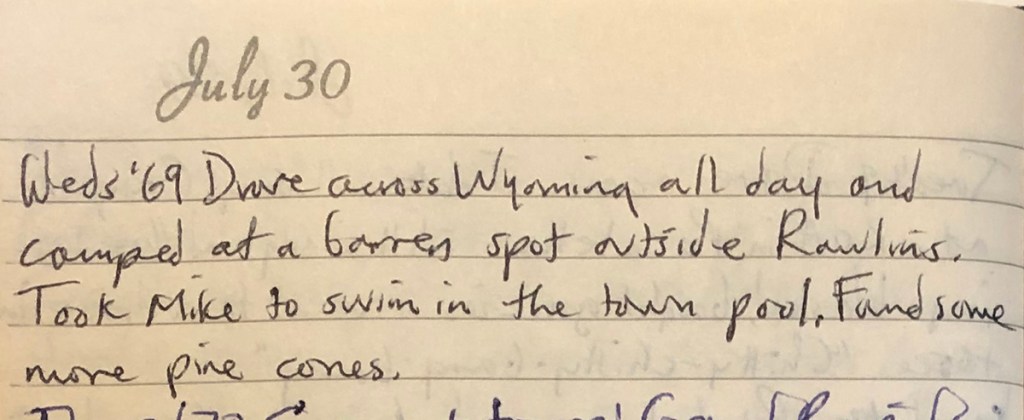 July 30
Weds '69 Drove across Wyoming all day and
camped at a barren spot outside Rawlins.
Took Mike to swim in the town pool. Found some
more pine cones.